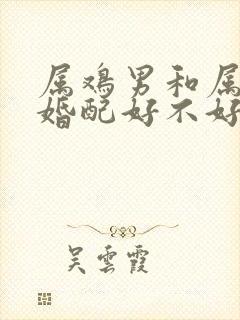 属鸡男和属
婚配好不好
吴云霞